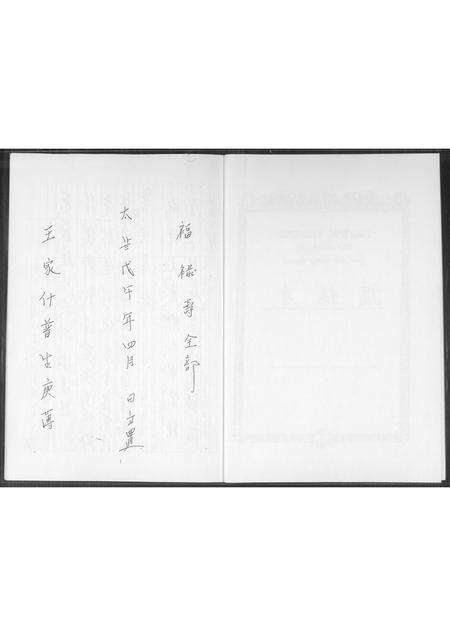 福禄寿全部
太岁戊午年四月 日立置
王家什普生庚薄